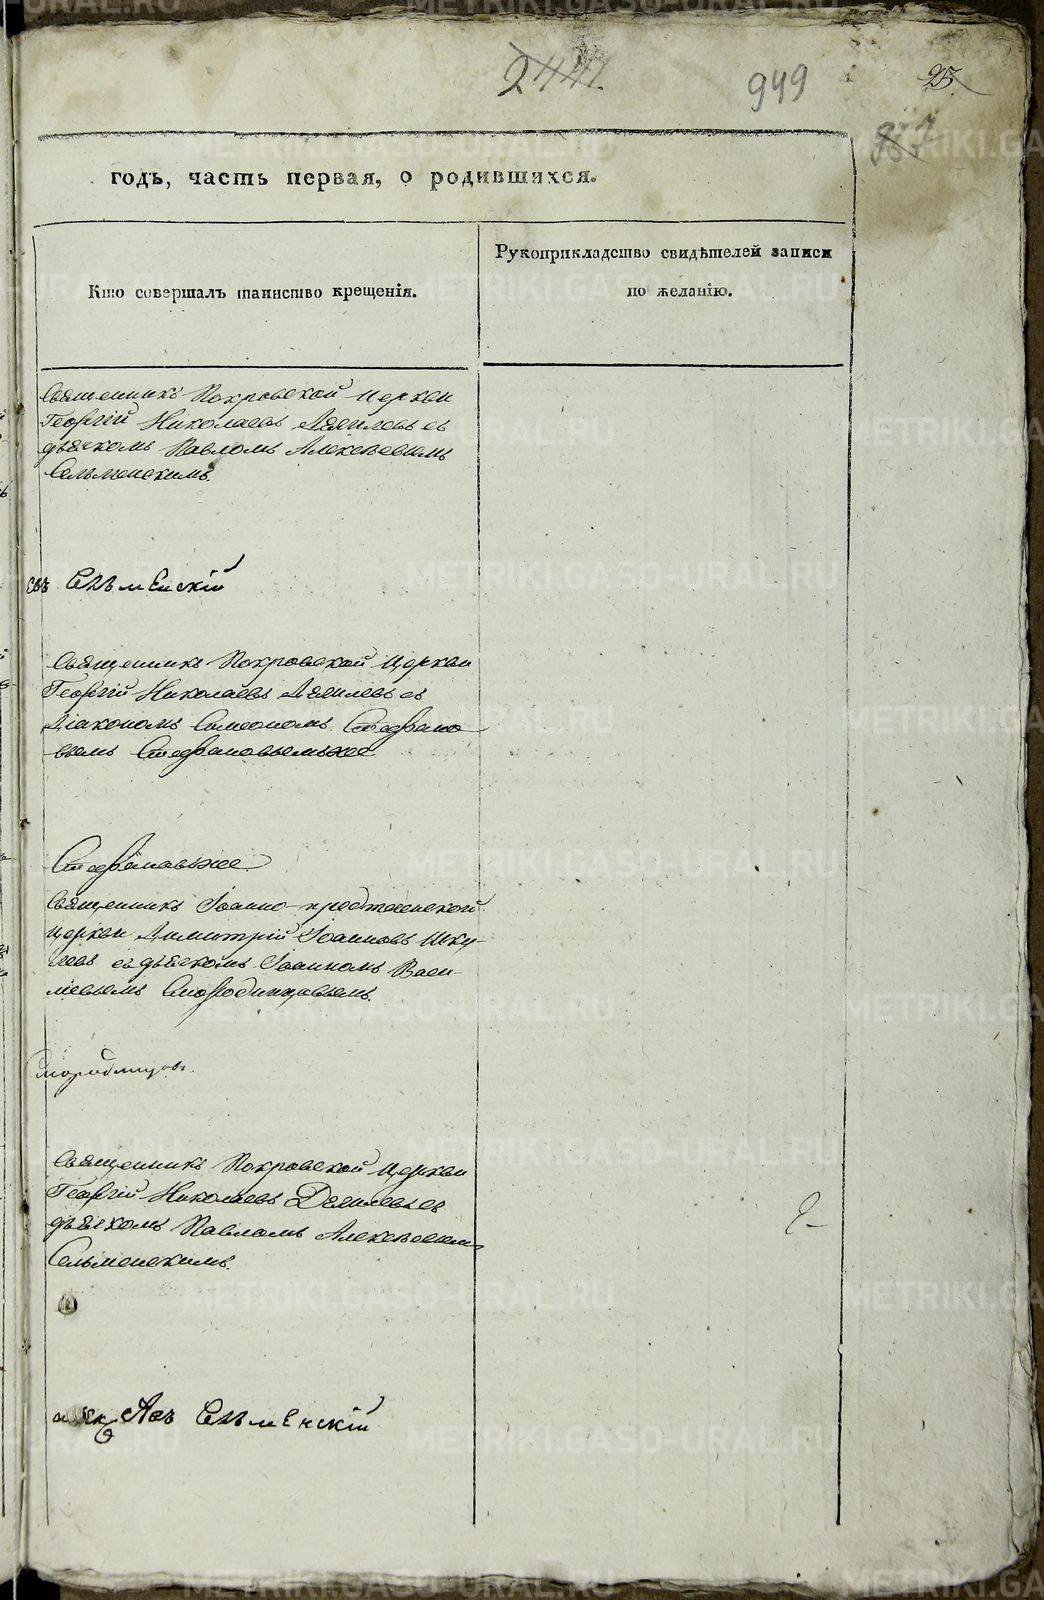 2441.
949
25.
годъ, часть первая, о родившихся.
Кто совершалъ таинство крещенія.
Рукоприкладство свидѣтелей записи
по желанію.
Священникъ Покровской церкви
Георгій Николаевъ съ
дьячкомъ Павломъ Алексѣевымъ
Сельменскимъ.
Сельменскій
Священникъ Покровской церкви
Георгій Николаевъ съ
Діакономъ Симеономъ Стефано
вымъ Стефановымъ же
Стефановъ же
Священникъ Іоанно-предтеченской
церкви Димитрій Іоанновъ Шку-
левъ съ дьячкомъ Іоанномъ Васи-
льевымъ Смородинцовымъ.
Смородинцовъ.
Священникъ Покровской церкви
Георгій Николаевъ съ
дьячкомъ Павломъ Алексѣевымъ
Сельменскимъ.
Сельменскій
METRIKI.GASO-URAL.RU